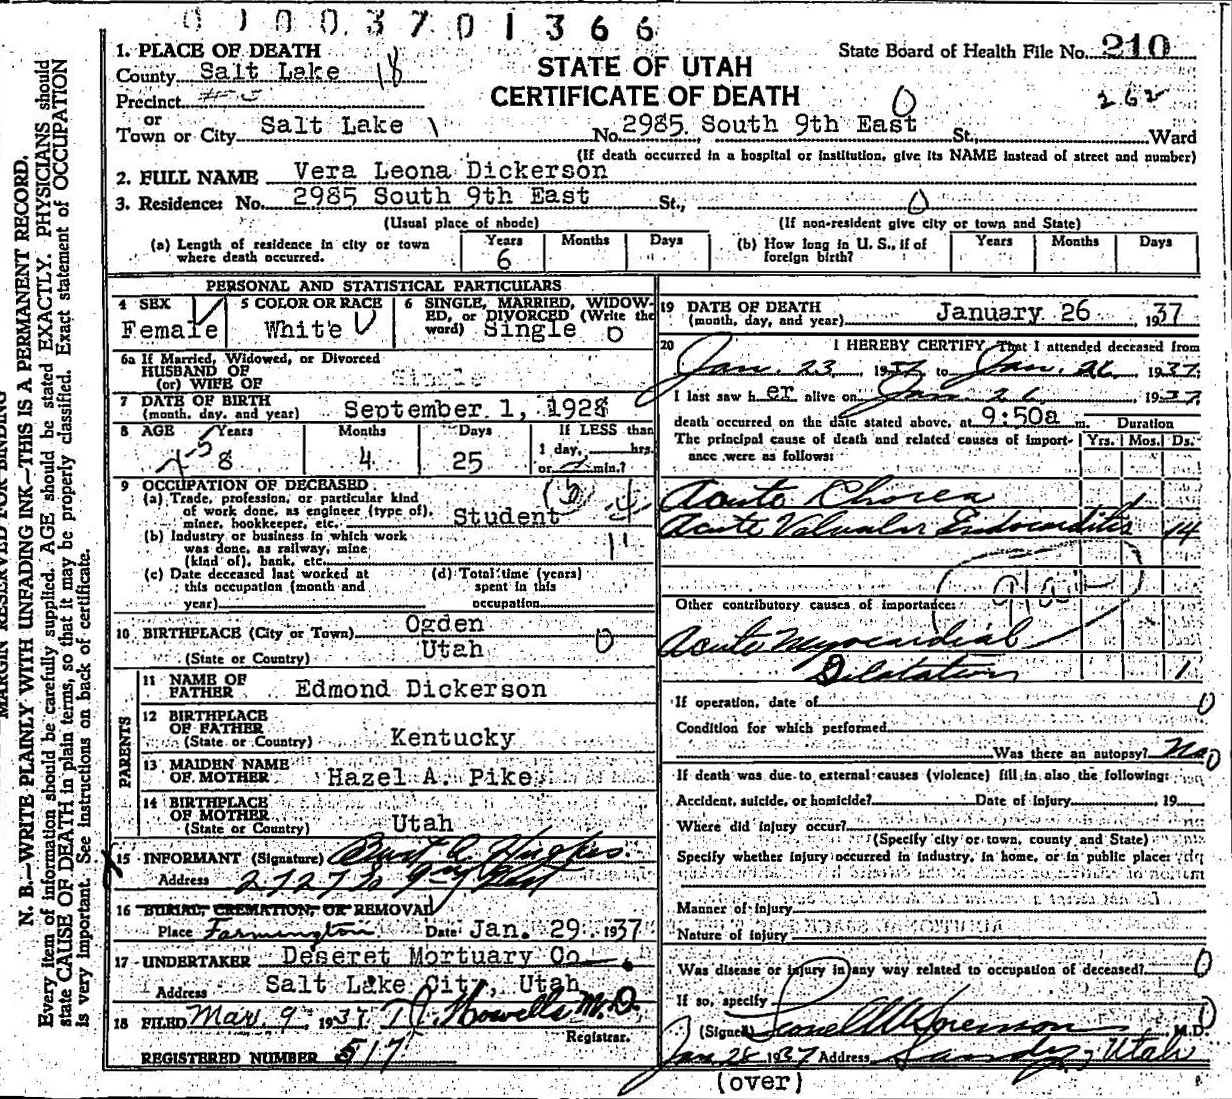 01003701366
1. PLACE OF DEATH
County Salt Lake 18
Precinct
or
Town or City Salt Lake
State Board of Health File No. 210
STATE OF UTAH
CERTIFICATE OF DEATH
0
262
No. 2985 South 9th East St., Ward
(If death occurred in a hospital or institution, give its NAME instead of street and number)
2. FULL NAME Vera Leona Dickerson
3. Residence: No. 2985 South 9th East St., 0
(Usual place of abode) (If non-resident give city or town and State)
(a) Length of residence in city or town where death occurred. Years 6 Months Days
(b) How long in U. S., if of foreign birth? Years Months Days
PERSONAL AND STATISTICAL PARTICULARS
4 SEX Female
5 COLOR OR RACE White
6 SINGLE, MARRIED, WIDOWED, or DIVORCED (Write the word) Single 0
6a If Married, Widowed, or Divorced
HUSBAND OF
(or) WIFE OF Single
7 DATE OF BIRTH
(month, day, and year) September 1, 1928
8 AGE Years 8 Months 4 Days 25
If LESS than
1 day, hrs.
or min.?
9 OCCUPATION OF DECEASED
(a) Trade, profession, or particular kind
of work done, as engineer (type of),
miner, bookkeeper, etc. Student
(b) Industry or business in which work
was done, as railway, mine
(kind of), bank, etc.
(c) Date deceased last worked at
this occupation (month and
year)
(d) Total time (years)
spent in this
occupation
10 BIRTHPLACE (City or Town) Ogden
(State or Country) Utah 0
PARENTS
11 NAME OF
FATHER Edmond Dickerson
12 BIRTHPLACE
OF FATHER
(State or Country) Kentucky
13 MAIDEN NAME
OF MOTHER Hazel A. Pike
14 BIRTHPLACE
OF MOTHER
(State or Country) Utah
X 15 INFORMANT (Signature) Burt A. Hughes
Address 2727 So 9th East
16 BURIAL, CREMATION, OR REMOVAL
Place Farmington Date Jan. 29 1937
17 UNDERTAKER Deseret Mortuary Co.
Address Salt Lake City, Utah
18 FILED Mar. 9 1937 Howells M.D.
Registrar.
REGISTERED NUMBER 517
19 DATE OF DEATH
(month, day, and year) January 26, 1937
20 I HEREBY CERTIFY, That I attended deceased from
Jan. 23, 1937, to Jan. 26, 1937;
I last saw her alive on Jan 26, 1937
death occurred on the date stated above, at 9:50a m. Duration
The principal cause of death and related causes of importance were as follows: Yrs. Mos. Ds.
Acute Chorea
Acute Valvular Endocarditis 14
Other contributory causes of importance:
Acute Myocardial
Dilatation 1
If operation, date of 0
Condition for which performed
Was there an autopsy? No 0
If death was due to external causes (violence) fill in also the following:
Accident, suicide, or homicide? Date of injury 19
Where did injury occur?
(Specify city or town, county and State)
Specify whether injury occurred in industry, in home, or in public place:
Manner of injury
Nature of injury
Was disease or injury in any way related to occupation of deceased? 0
If so, specify 0
(Signed) M.D.
Jan 28 1937 Address Sandy, Utah
(over)
MARGIN RESERVED FOR BINDING
N. B.—WRITE PLAINLY WITH UNFADING INK—THIS IS A PERMANENT RECORD.
Every item of information should be carefully supplied. AGE should be stated EXACTLY. PHYSICIANS should
state CAUSE OF DEATH in plain terms, so that it may be properly classified. Exact statement of OCCUPATION
is very important. See instructions on back of certificate.